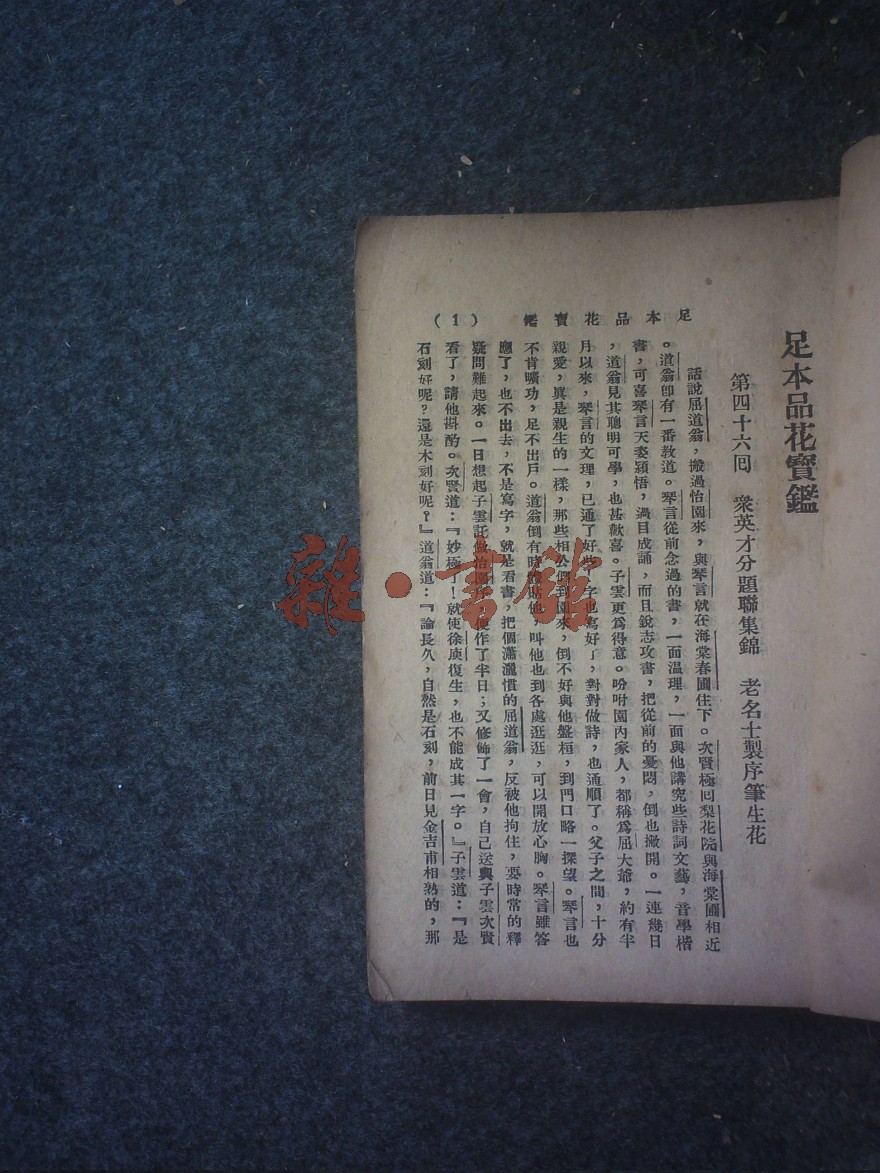 足本品花寶鑑
第四十六回　衆英才分題聯集錦　老名士製序筆生花
話說屈道翁，搬過怡園來，與琴言就在海棠春圃住下。次賢極回梨花院與海棠圃相近
。道翁卽有一番敎道。琴言從前念過的書，一面溫理，一面與他講究些詩詞文藝，音學楷
書，可喜琴言天姿穎悟，過目成誦，而且銳志攻書，把從前的憂悶，倒也撇開。一連幾日
，道翁見其聰明可學，也甚歡喜。子雲更爲得意。吩咐園內家人，都稱爲屈大爺，約有半
月以來，琴言的文理，已通了好些，字也寫好了，對對做詩，也通順了。父子之間，十分
親愛，眞是親生的一樣，那些相公們到園來，倒不好與他盤桓，到門口略一探望。琴言也
不肯曠功，足不出戶。道翁倒有時體貼他，叫他也到各處逛逛，可以開放心胸。琴言雖答
應了，也不出去，不是寫字，就是看書，把個瀟灑慣的屈道翁，反被他拘住，要時常的釋
疑問難起來。一日想起子雲託做怡園序，便作了半日；又修飾了一會，自己送與子雲次賢
看了，請他斟酌。次賢道：『妙極了！就使徐庾復生，也不能成其一字。』子雲道：『是
石刻好呢？還是木刻好呢？』道翁道：『論長久，自然是石刻，前日見金吉甫相熟的，那
足本品花寶鑑　（1）
雜·書館